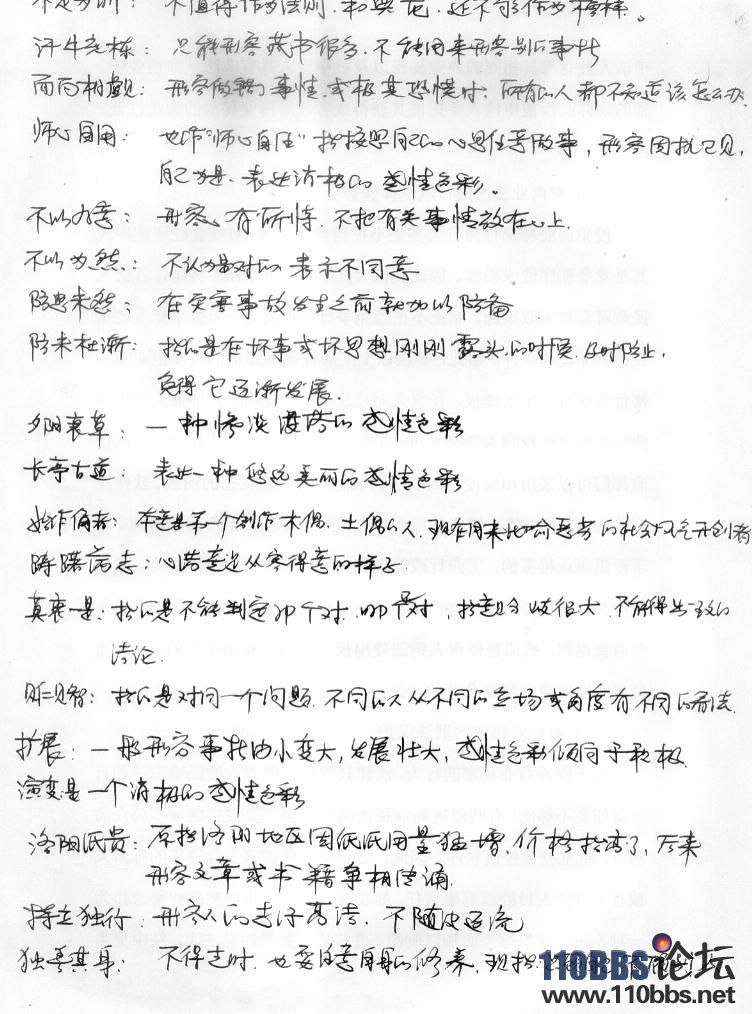 不足为训：不值得作为法则，和典范，还不能作为榜样。
汗牛充栋：只能形容藏书很多，不能用来形容别的事物
面面相觑：形容做错事情或极其恐慌时，所有的人都不知道该怎么办
师心自用：也作“师心自任”指按照自己的心思任意做事，形容固执己见，
自以为是、表达消极的感情色彩。
不以为意：形容、有所恃，不把有关事情放在心上
不以为然：不认为是对的 表示不同意
防患未然：在灾害事故发生之前就加以防备
防未杜渐：指的是在坏事或坏思想刚刚露头的时候，及时防止，
免得它逐渐发展.
夕阳衰草：一种惨淡没落的感情色彩
长亭古道：表达一种悠远美丽的感情色彩
始作俑者：本意是第一个制作木偶、土偶的人，现在用来比喻恶劣的社会风气开创者
踌躇满志：心满意足从容得意的样子
莫衷一是：指的是不能判定哪个对，哪个不对，指意见分歧很大，不能得出一致的
结论.
见仁见智：指的是对同一个问题，不同的人从不同的立场或角度有不同的看法.
扩展：一般形容事物由小变大，发展壮大，感情色彩倾向于积极
演变是一个消极的感情色彩
洛阳纸贵：原指洛阳地区因纸纸用量狂增，价格抬高了，后来
形容文章或书籍争相传诵
特立独行：形容人的志行高洁，不随波逐流
独善其身：不得志时，也要注意自身的修养，现指
110BBS论坛
www.110bbs.net